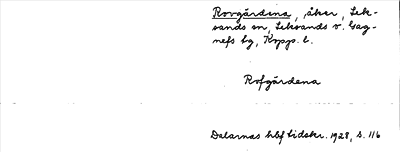 Rovgärdena, åker, Lek-
sands sn, Leksands o. Gag-
nefs tg, Kopp. l.
Rofgärdena
Dalarnas hbf tidskr. 1928, s. 116